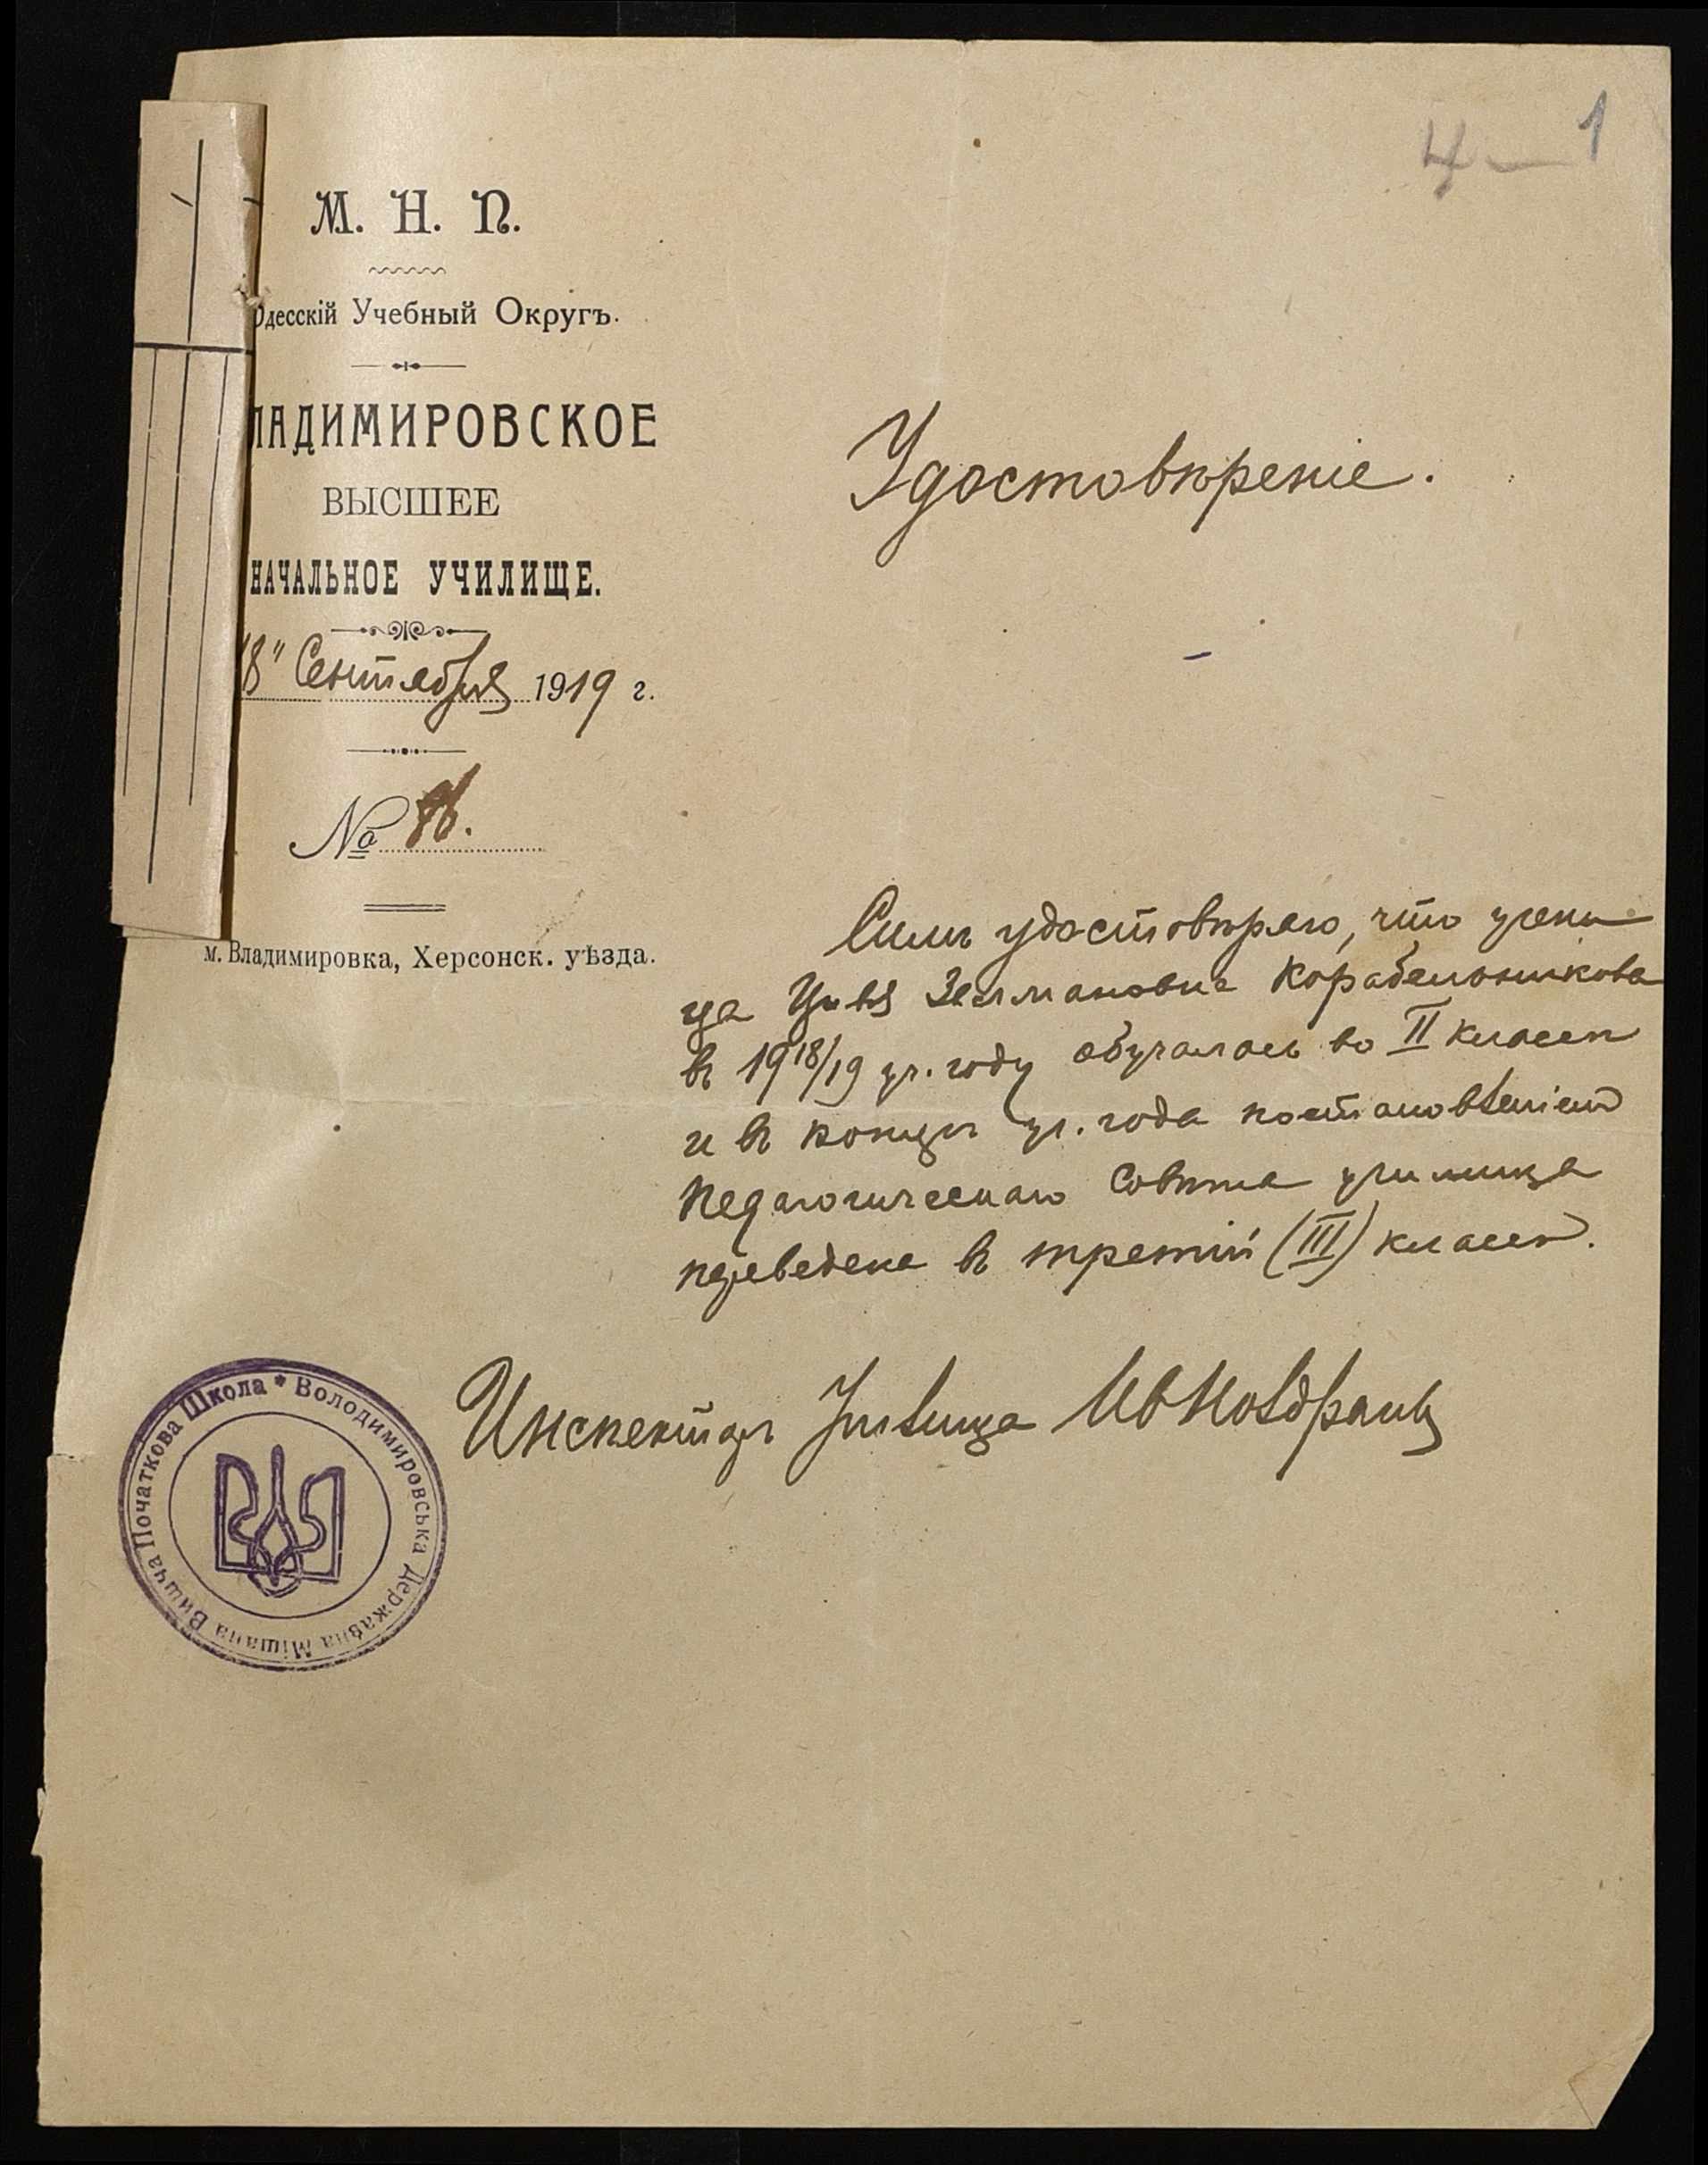 4 — 1
М. Н. П.
Одесскій Учебный Округъ.
ЛАДИМИРОВСКОЕ
ВЫСШЕЕ
НАЧАЛЬНОЕ УЧИЛИЩЕ.
8" Сентября 1919 г.
№
м. Владимировка, Херсонск. уѣзда.
Удостовѣреніе.
Симъ удостовѣряю, что учени
ца Цивя Зельмановна Корабельникова
въ 1918/19 уч. году обучалась во II классѣ
и въ концѣ уч. года постановленіемъ
Педагогическаго Совѣта училища
переведена въ третій (III) классъ.
Инспекторъ Училища
Володимировська Державна Мішана Вища Початкова Школа *